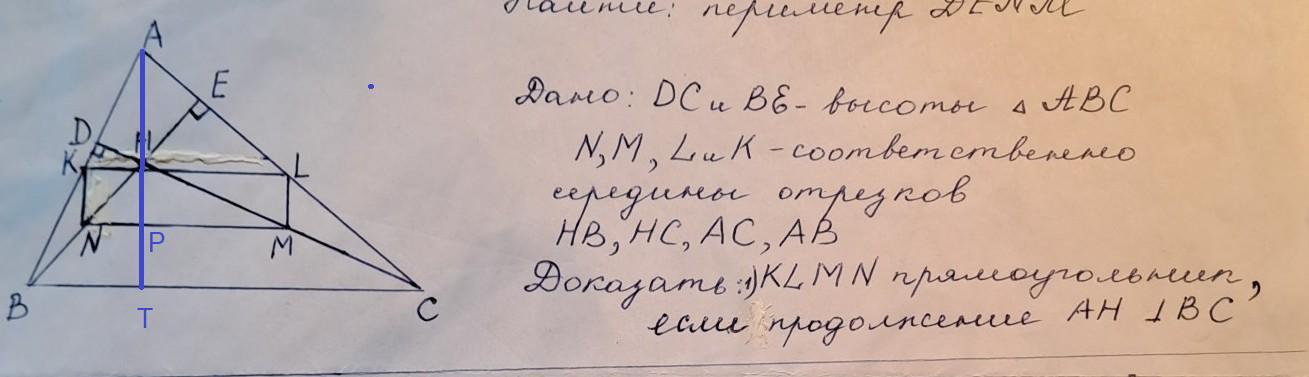 Найти: периметр DENM
A
E
Дано: DC и BE - высоты △ ABC
D
H
N, M, L и K - соответственно
K
L
середины отрезков
HB, HC, AC, AB
N
P
M
Доказать: 1) KLMN прямоугольник,
B
T
C
если продолжение AH ⊥ BC